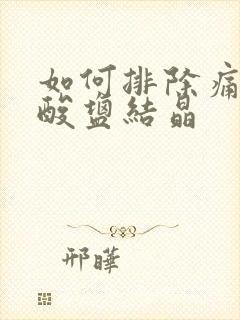 如何排除痛
酸盐結晶
邢曄